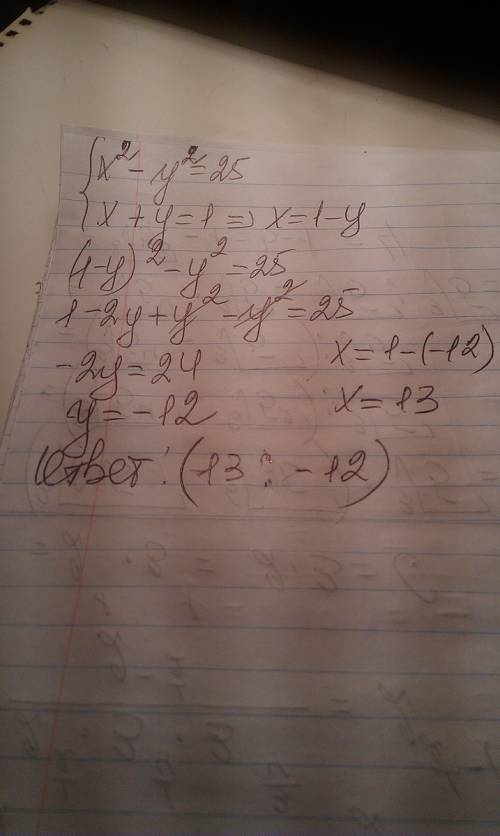 { x² - y² = 25
x + y = 1 => x = 1 - y
(1-y)² - y² = 25
1 - 2y + y² - y² = 25
-2y = 24
x = 1 - (-12)
y = -12
x = 13
Ответ: (13 ; -12)